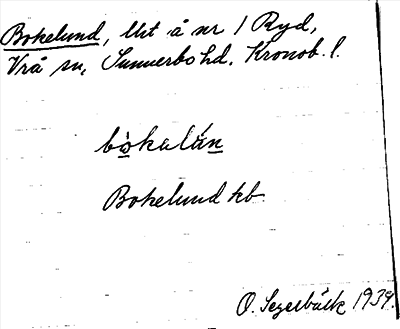 Bokelund, llht å nr 1 Ryd,
Vrå sn, Sunnerbo hd. Kronob. l.
bòkalún
Bokelund kb.
O. Segerbäck 1939.